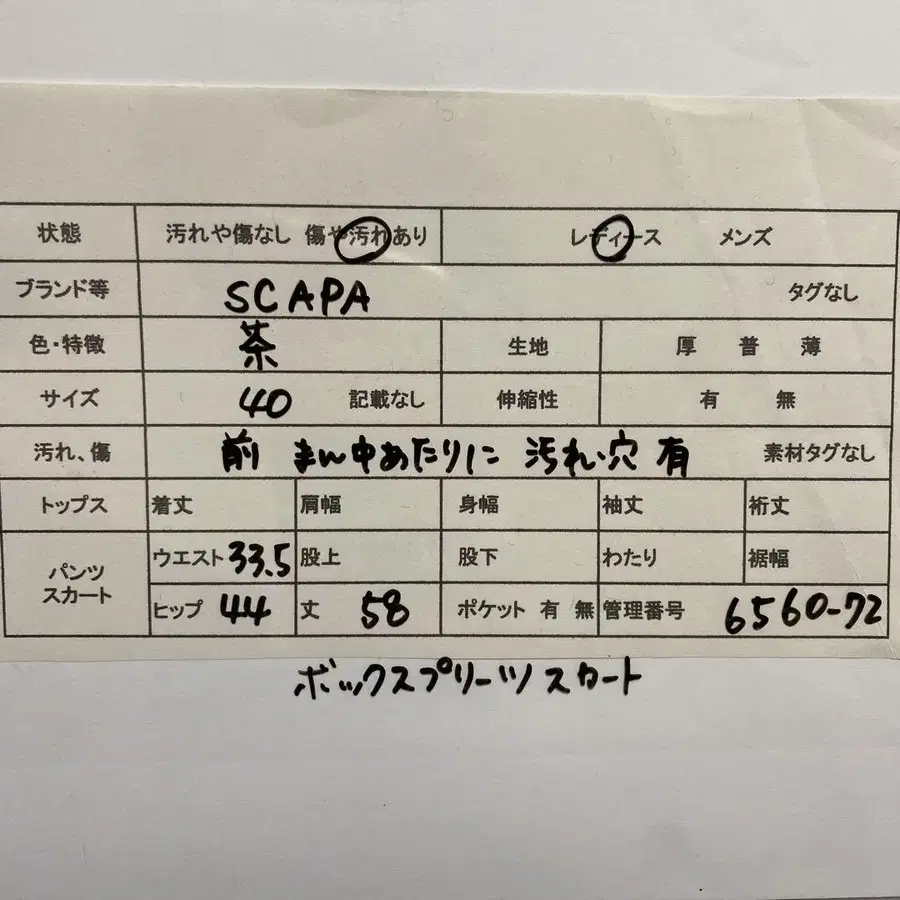 状態 汚れや傷なし 傷や汚れあり レディース メンズ
ブランド等 SCAPA タグなし
色・特徴 茶 生地 厚 普 薄
サイズ 40 記載なし 伸縮性 有 無
汚れ、傷 前 まん中あたりに 汚れ・穴 有 素材タグなし
トップス 着丈 肩幅 身幅 袖丈 裄丈
パンツ スカート ウエスト 33.5 股上 股下 わたり 裾幅
ヒップ 44 丈 58 ポケット 有 無 管理番号 6560-72
ボックスプリーツスカート